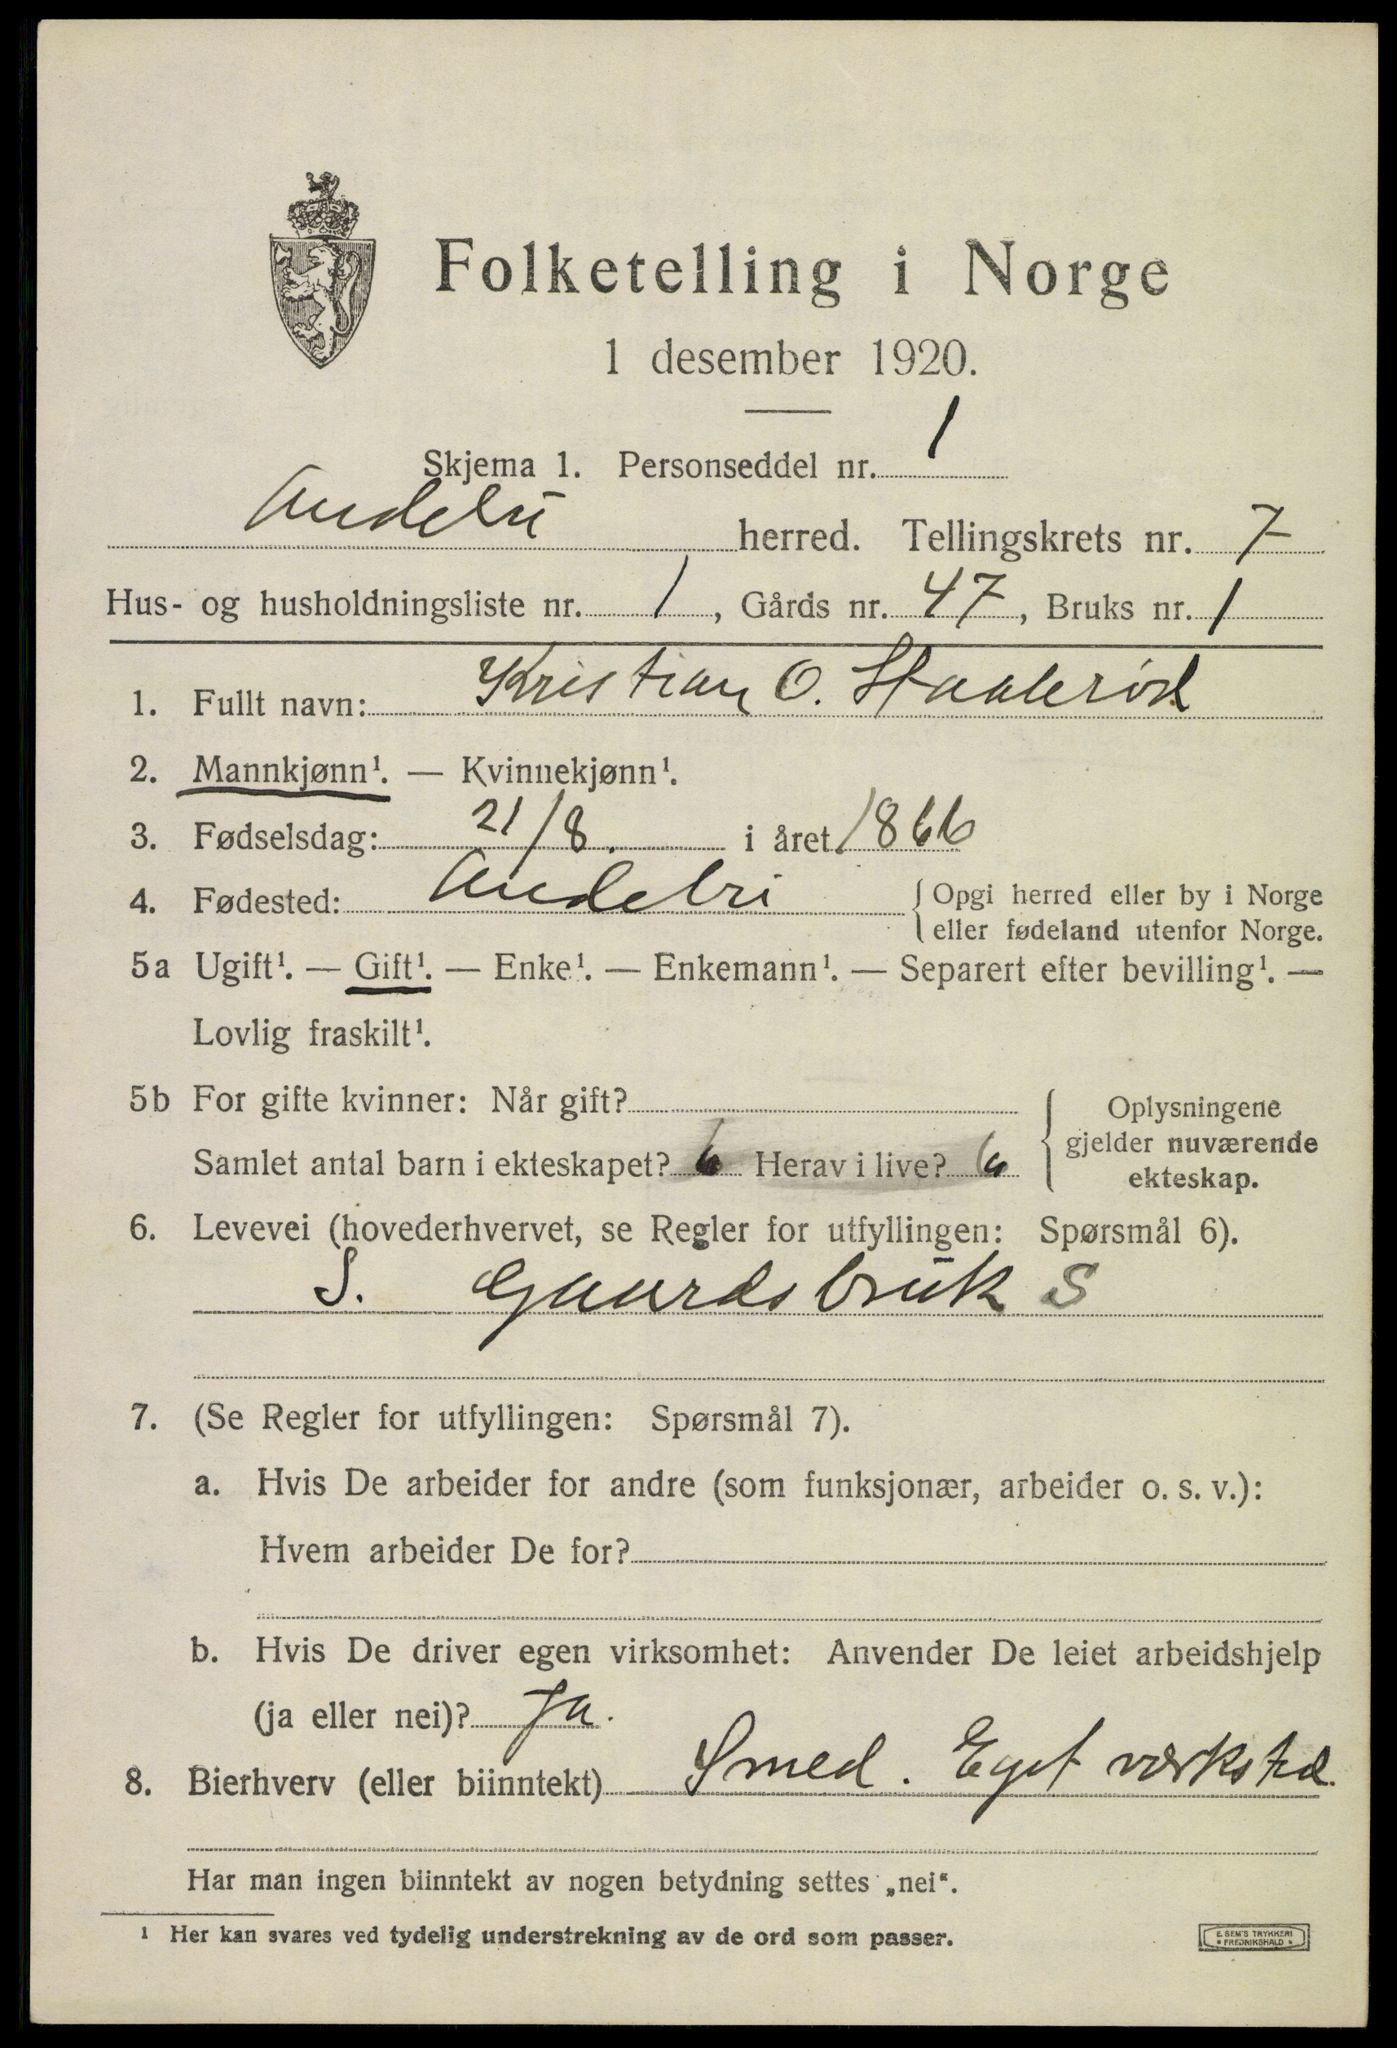 Folketelling i Norge
1 desember 1920.
Skjema 1. Personseddel nr. 1
Andebu herred. Tellingskrets nr. 7
Hus- og husholdningsliste nr. 1, Gårds nr. 47, Bruks nr. 1
1. Fullt navn: Kristian O. Staalerød
2. Mannkjønn¹. — Kvinnekjønn¹.
3. Fødselsdag: 21/8. i året 1866
4. Fødested: Andebu {Opgi herred eller by i Norge
eller fødeland utenfor Norge.
5a Ugift¹. — Gift¹. — Enke¹. — Enkemann¹. — Separert efter bevilling¹. —
Lovlig fraskilt¹.
5b For gifte kvinner: Når gift?
Samlet antal barn i ekteskapet? 6 Herav i live? 6
Oplysningene
gjelder nuværende
ekteskap.
6. Levevei (hovederhvervet, se Regler for utfyllingen: Spørsmål 6).
S. Gaardsbruk S
7. (Se Regler for utfyllingen: Spørsmål 7).
a. Hvis De arbeider for andre (som funksjonær, arbeider o. s. v.):
Hvem arbeider De for?
b. Hvis De driver egen virksomhet: Anvender De leiet arbeidshjelp
(ja eller nei)? Ja.
8. Bierhverv (eller biinntekt) Smed. Eget værksted.
Har man ingen biinntekt av nogen betydning settes „nei“.
¹ Her kan svares ved tydelig understrekning av de ord som passer.
E. SEM'S TRYKKERI
* FREDRIKSHALD *